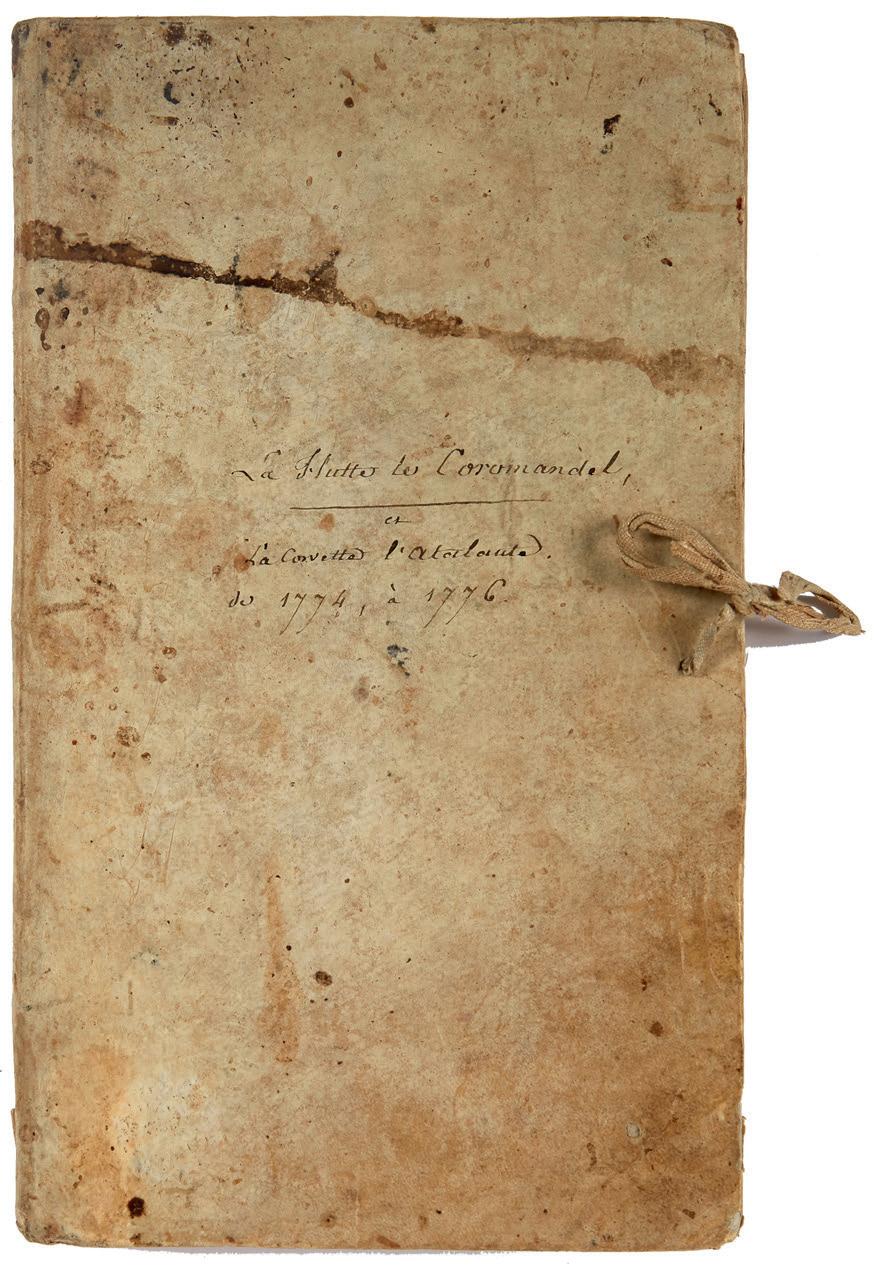 La Flutte le Coromandel,
et
La Corvette l'Atalante.
de 1774, à 1776.